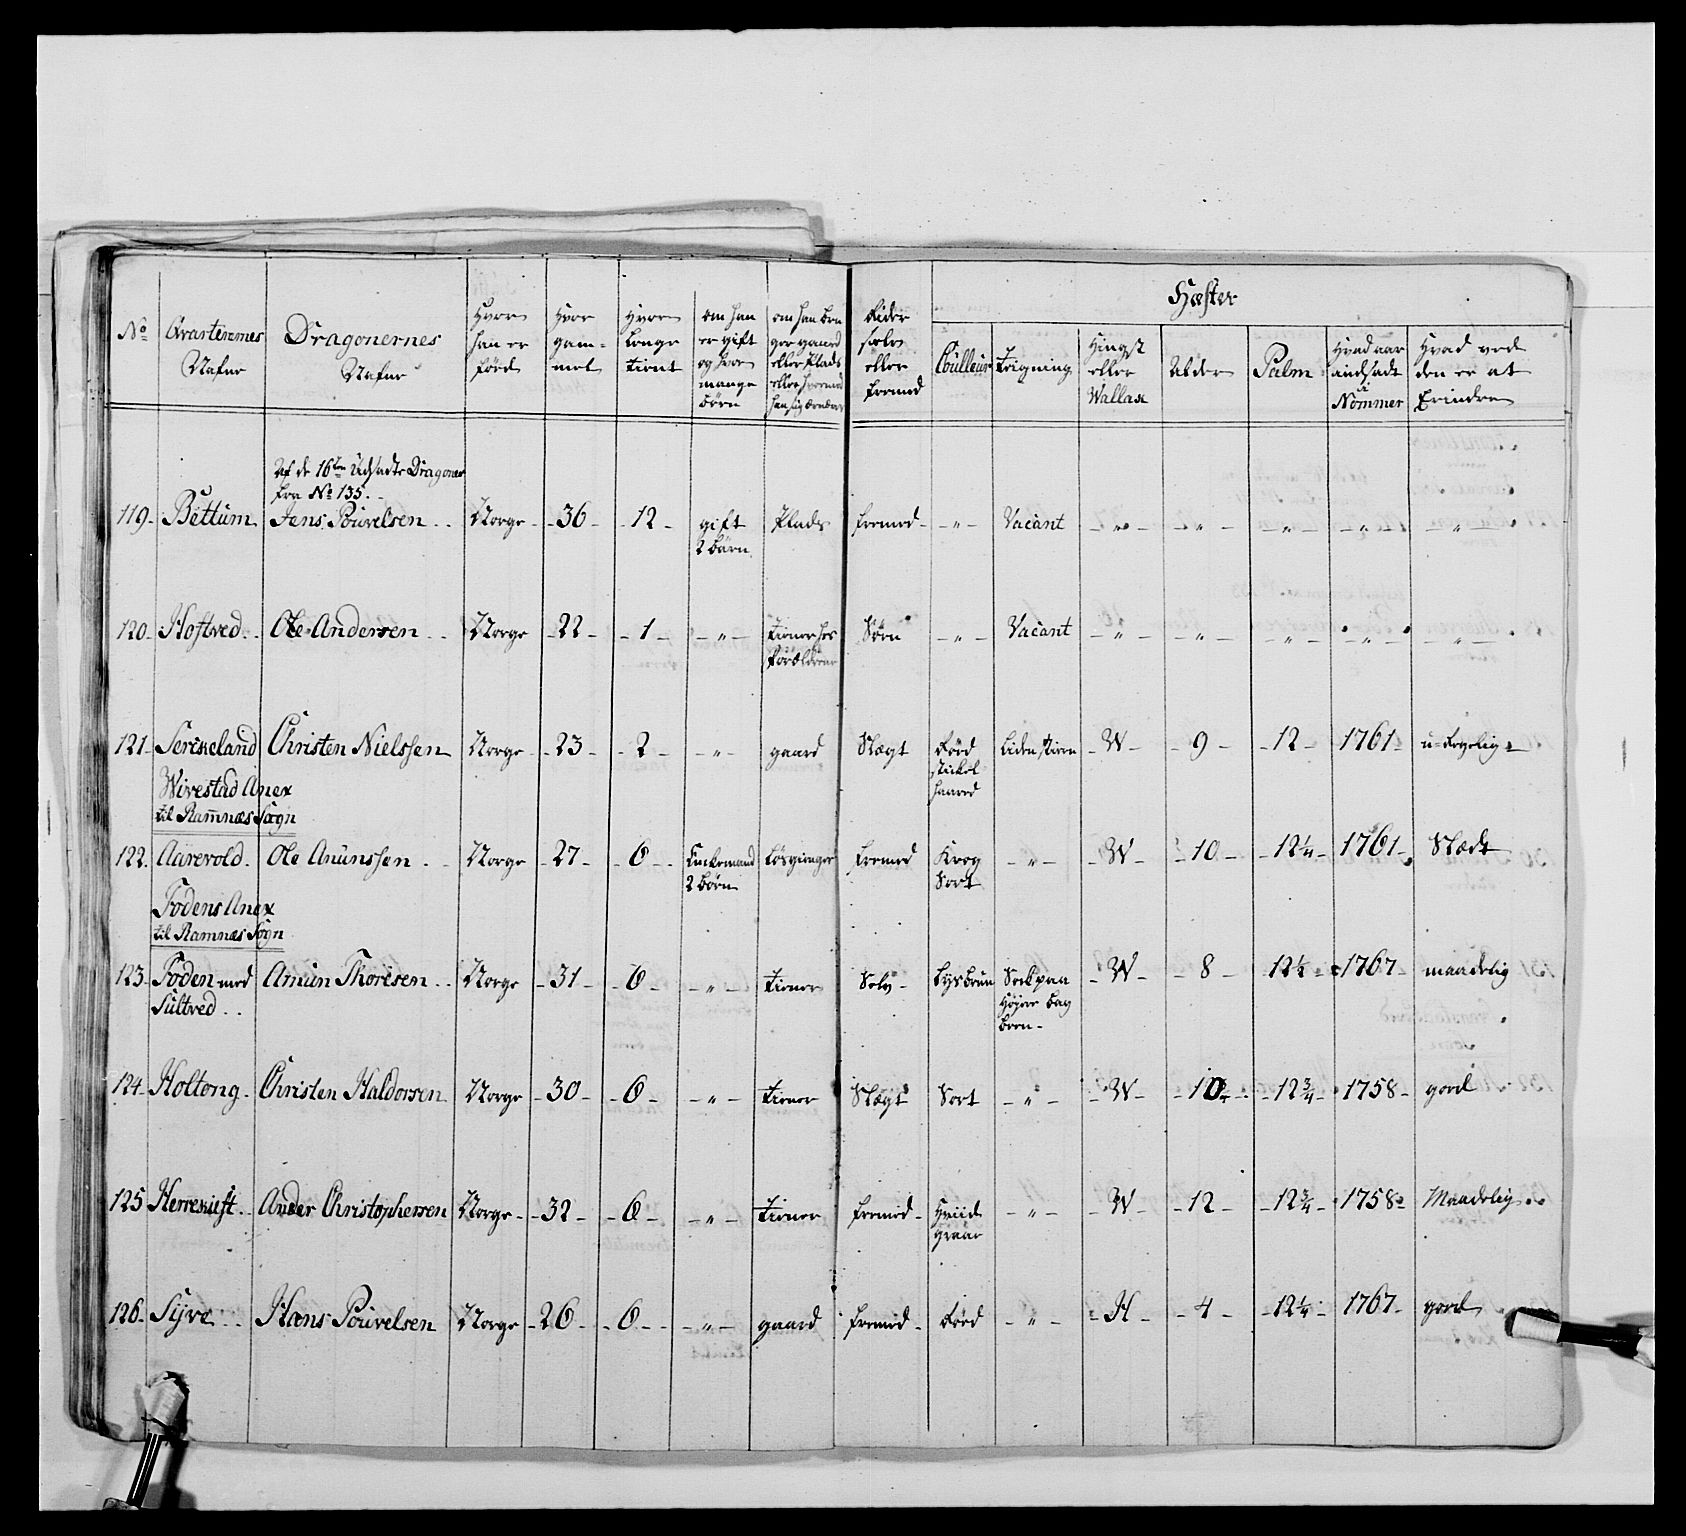 No
Qvarterernes Nafne
Dragonernes Nafne
Hvor han er fød
Hvor gammel
Hvor lenge tient
om han er gift og hvor mange børn
om han bruger gaard eller Plads eller hvormed han sig ernærer
Rider selv eller fremed
Hæster
Coulleur
teigning
Hingst eller Wallak
Alder
Palm
Hvad aar indsadt i Nommer
Hvad ved den er at Erindre
Af de 16ten Udsadte Dragoner
fra No 135.
119- Bettum Jens Pouvelsen Norge - 36 - 12 - gift 2 børn Plads fremed - " - Vacant - " - - " - - " - - " - - " -
120- Hoftved Ole Andersen Norge - 22 - 1 - - " - tiener hos forældrene Sørn - " - Vacant - " - - " - - " - - " - - " -
121- Christen Nielssen Norge - 23 - 2 - - " - gaard Slegt Rød stickel haared liden stierne - W - - 9 - - 12 - 1761 - u-
Wivestad Anex
til Ramnæs Sogn
122. Aarevold. Ole Anunssen Norge - 27 - 6 - Enkemand 2 børn løsgienger fremed Sort - " - - W - - 10 - - 12¼ - 1761 - Slædt
Fodens Anex
til Ramnæs Sogn
123- Foden med Sultved Amun Thoresen Norge - 31 - 6 - - " - tiener Selv - Lysbrun Sock paa høyre bag been - - W - - 8 - 12½ - 1767 - maadelig
124- Holtong. Christen Haldorsen Norge - 30 - 6 - - " - tiener Slegt Sort - " - - W - - 10 - - 12¾ - 1758 - goed
125 Anders Christophersen Norge - 32 - 6 - - " - tiener fremed - Hviid graae - " - - W - - 12 - - 12¾ - 1758 - Maadelig
126- Syve Hans Pouvelsen Norge - 26 - 6 - - " - gaard fremed - Rød - " - - H - - 4 - - 12¼ - 1767 - goed